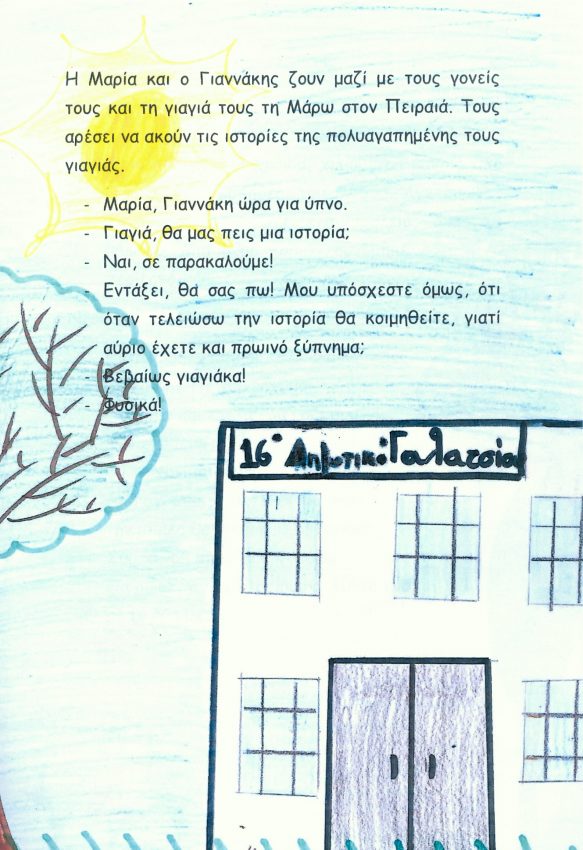 Η Μαρία και ο Γιαννάκης ζουν μαζί με τους γονείς
τους και τη γιαγιά τους τη Μάρω στον Πειραιά. Τους
αρέσει να ακούν τις ιστορίες της πολυαγαπημένης τους
γιαγιάς.
- Μαρία, Γιαννάκη ώρα για ύπνο.
- Γιαγιά, θα μας πεις μια ιστορία;
- Ναι, σε παρακαλούμε!
- Εντάξει, θα σας πω! Μου υπόσχεστε όμως, ότι
όταν τελειώσω την ιστορία θα κοιμηθείτε, γιατί
αύριο έχετε και πρωινό ξύπνημα;
- Βεβαίως γιαγιάκα!
- Φυσικά!
16ο Δημοτικό Γαλατσίου